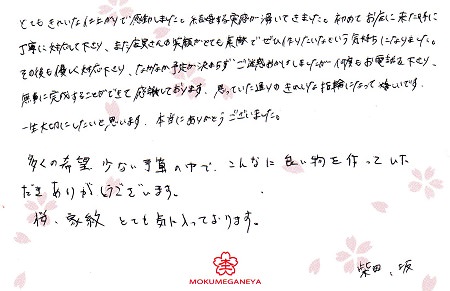 とてもきれいな仕上がりで感動しました。結婚する実感が湧いてきました。初めてお店に来た時に
丁寧に対応して下さり、また店員さんの笑顔がとても素敵でぜひ作りたいなという気持ちになりました。
その後も優しく対応下さり、なかなか予定が決まらずご迷惑おかけしましたが何度もお電話を下さり、
無事に完成することができて感謝しております。思っていた通りのきれいな指輪になって嬉しいです。
一生大切にしたいと思います。本当にありがとうございました。
多くの希望、少ない予算の中で、こんなに良い物を作っていた
だきありがとうございます。
桜、家紋 とても気に入っております。
柴田、坂
MOKUMEGANEYA